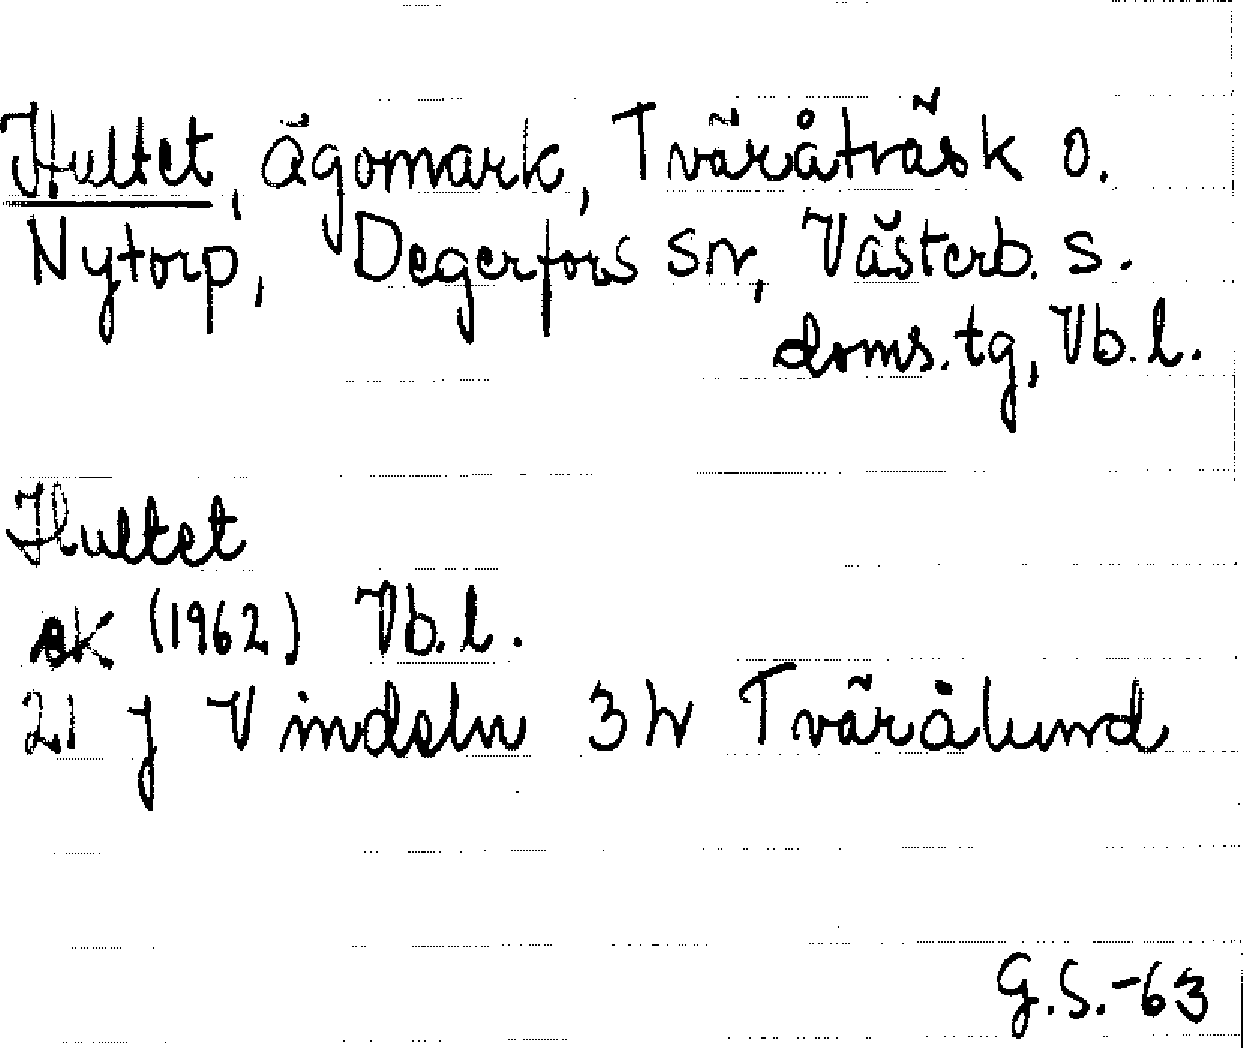 Hultet, ägomark, Tväråträsk o.
Nytorp, Degerfors sn, Västerb. s.
doms. tg, Vb. l.
Hultet
ek (1962) Vb. l.
21 J Vindeln 3 h Tvärålund
G.S.-63